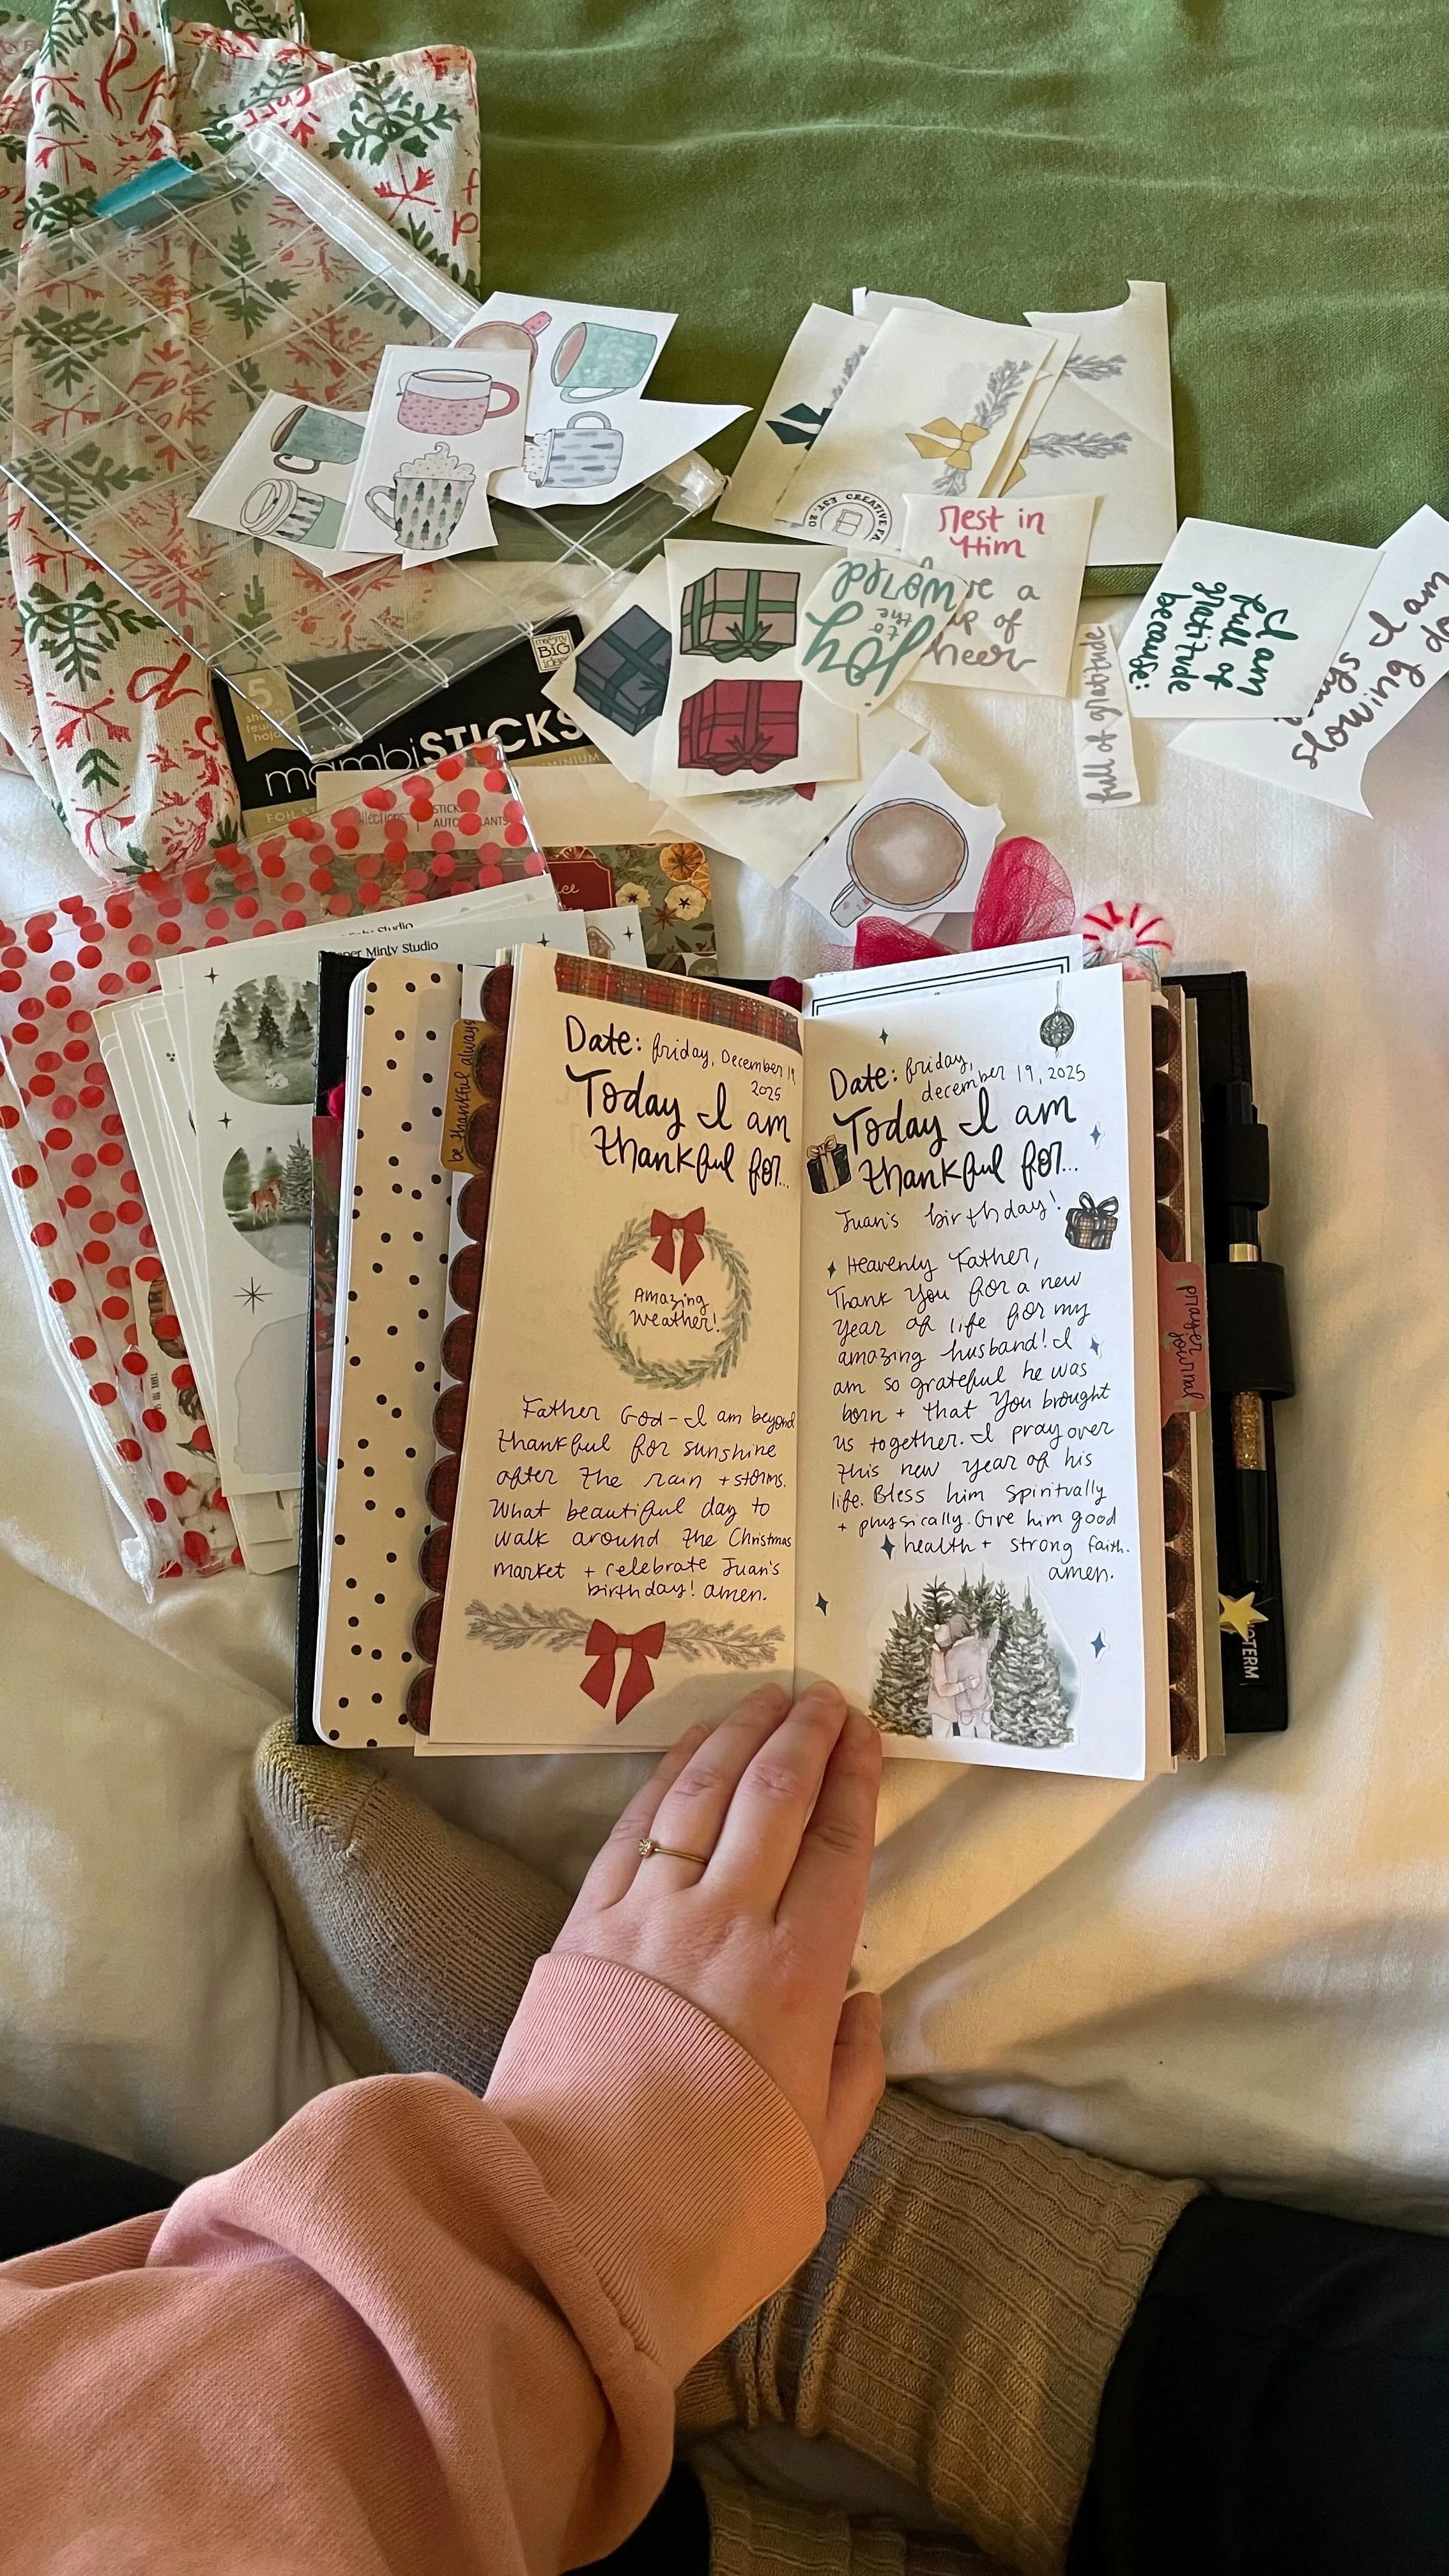 rest in
Him
e a
p of
heer
EST. 20
CREATIVE FA
joy
to
the
world
full of gratitude
I am
full of
gratitude
because:
I am
slowing do
5
mambiSTICKS
me & my
BiG
ideas
FOIL ST
STICK
AUTO
LANTS
Minty Studio
per Minty Studio
be thankful always
Date: friday, December 19,
2025
Today I am
thankful for...
Amazing
Weather!
Father God - I am beyond
thankful for sunshine
after the rain + storms.
What beautiful day to
walk around the Christmas
market + celebrate Juan's
birthday! amen.
Date: friday,
december 19, 2025
Today I am
thankful for...
Juan's birthday!
Heavenly Father,
Thank You for a new
year of life for my
amazing husband! I
am so grateful he was
born + that You brought
us together. I pray over
this new year of his
life. Bless him spiritually
+ physically. Give him good
health + strong faith.
amen.
prayer
journal
OTERM